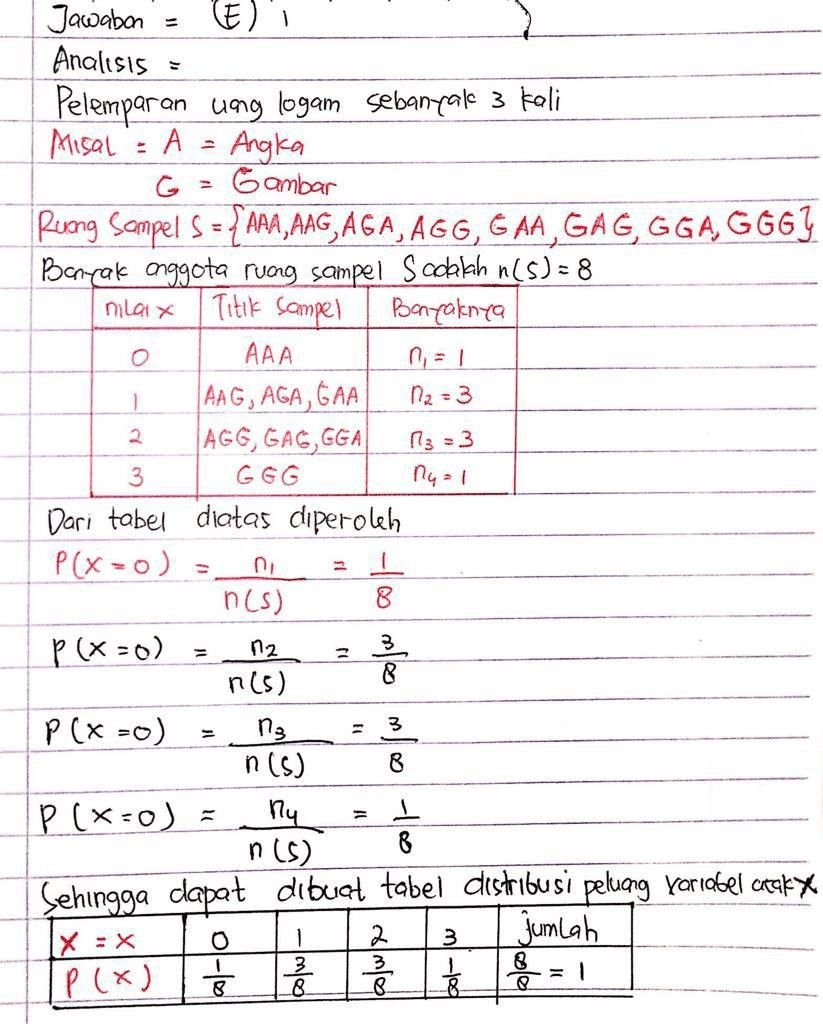 Jawaban = (E) 1
Analisis =
Pelemparan uang logam sebanyak 3 kali
Misal = A = Angka
G = Gambar
Ruang Sampel S = {AAA, AAG, AGA, AGG, GAA, GAG, GGA, GGG}
Banyak anggota ruang sampel S adalah n(S) = 8
nilai x | Titik Sampel | Banyaknya
0 | AAA | n₁ = 1
1 | AAG, AGA, GAA | n₂ = 3
2 | AGG, GAG, GGA | n₃ = 3
3 | GGG | n₄ = 1
Dari tabel diatas diperoleh
P(x = 0) = n₁/n(S) = 1/8
P(x = 0) = n₂/n(S) = 3/8
P(x = 0) = n₃/n(S) = 3/8
P(x = 0) = n₄/n(S) = 1/8
Sehingga dapat dibuat tabel distribusi peluang variabel acak X
X = x | 0 | 1 | 2 | 3 | jumlah
P(x) | 1/8 | 3/8 | 3/8 | 1/8 | 8/8 = 1